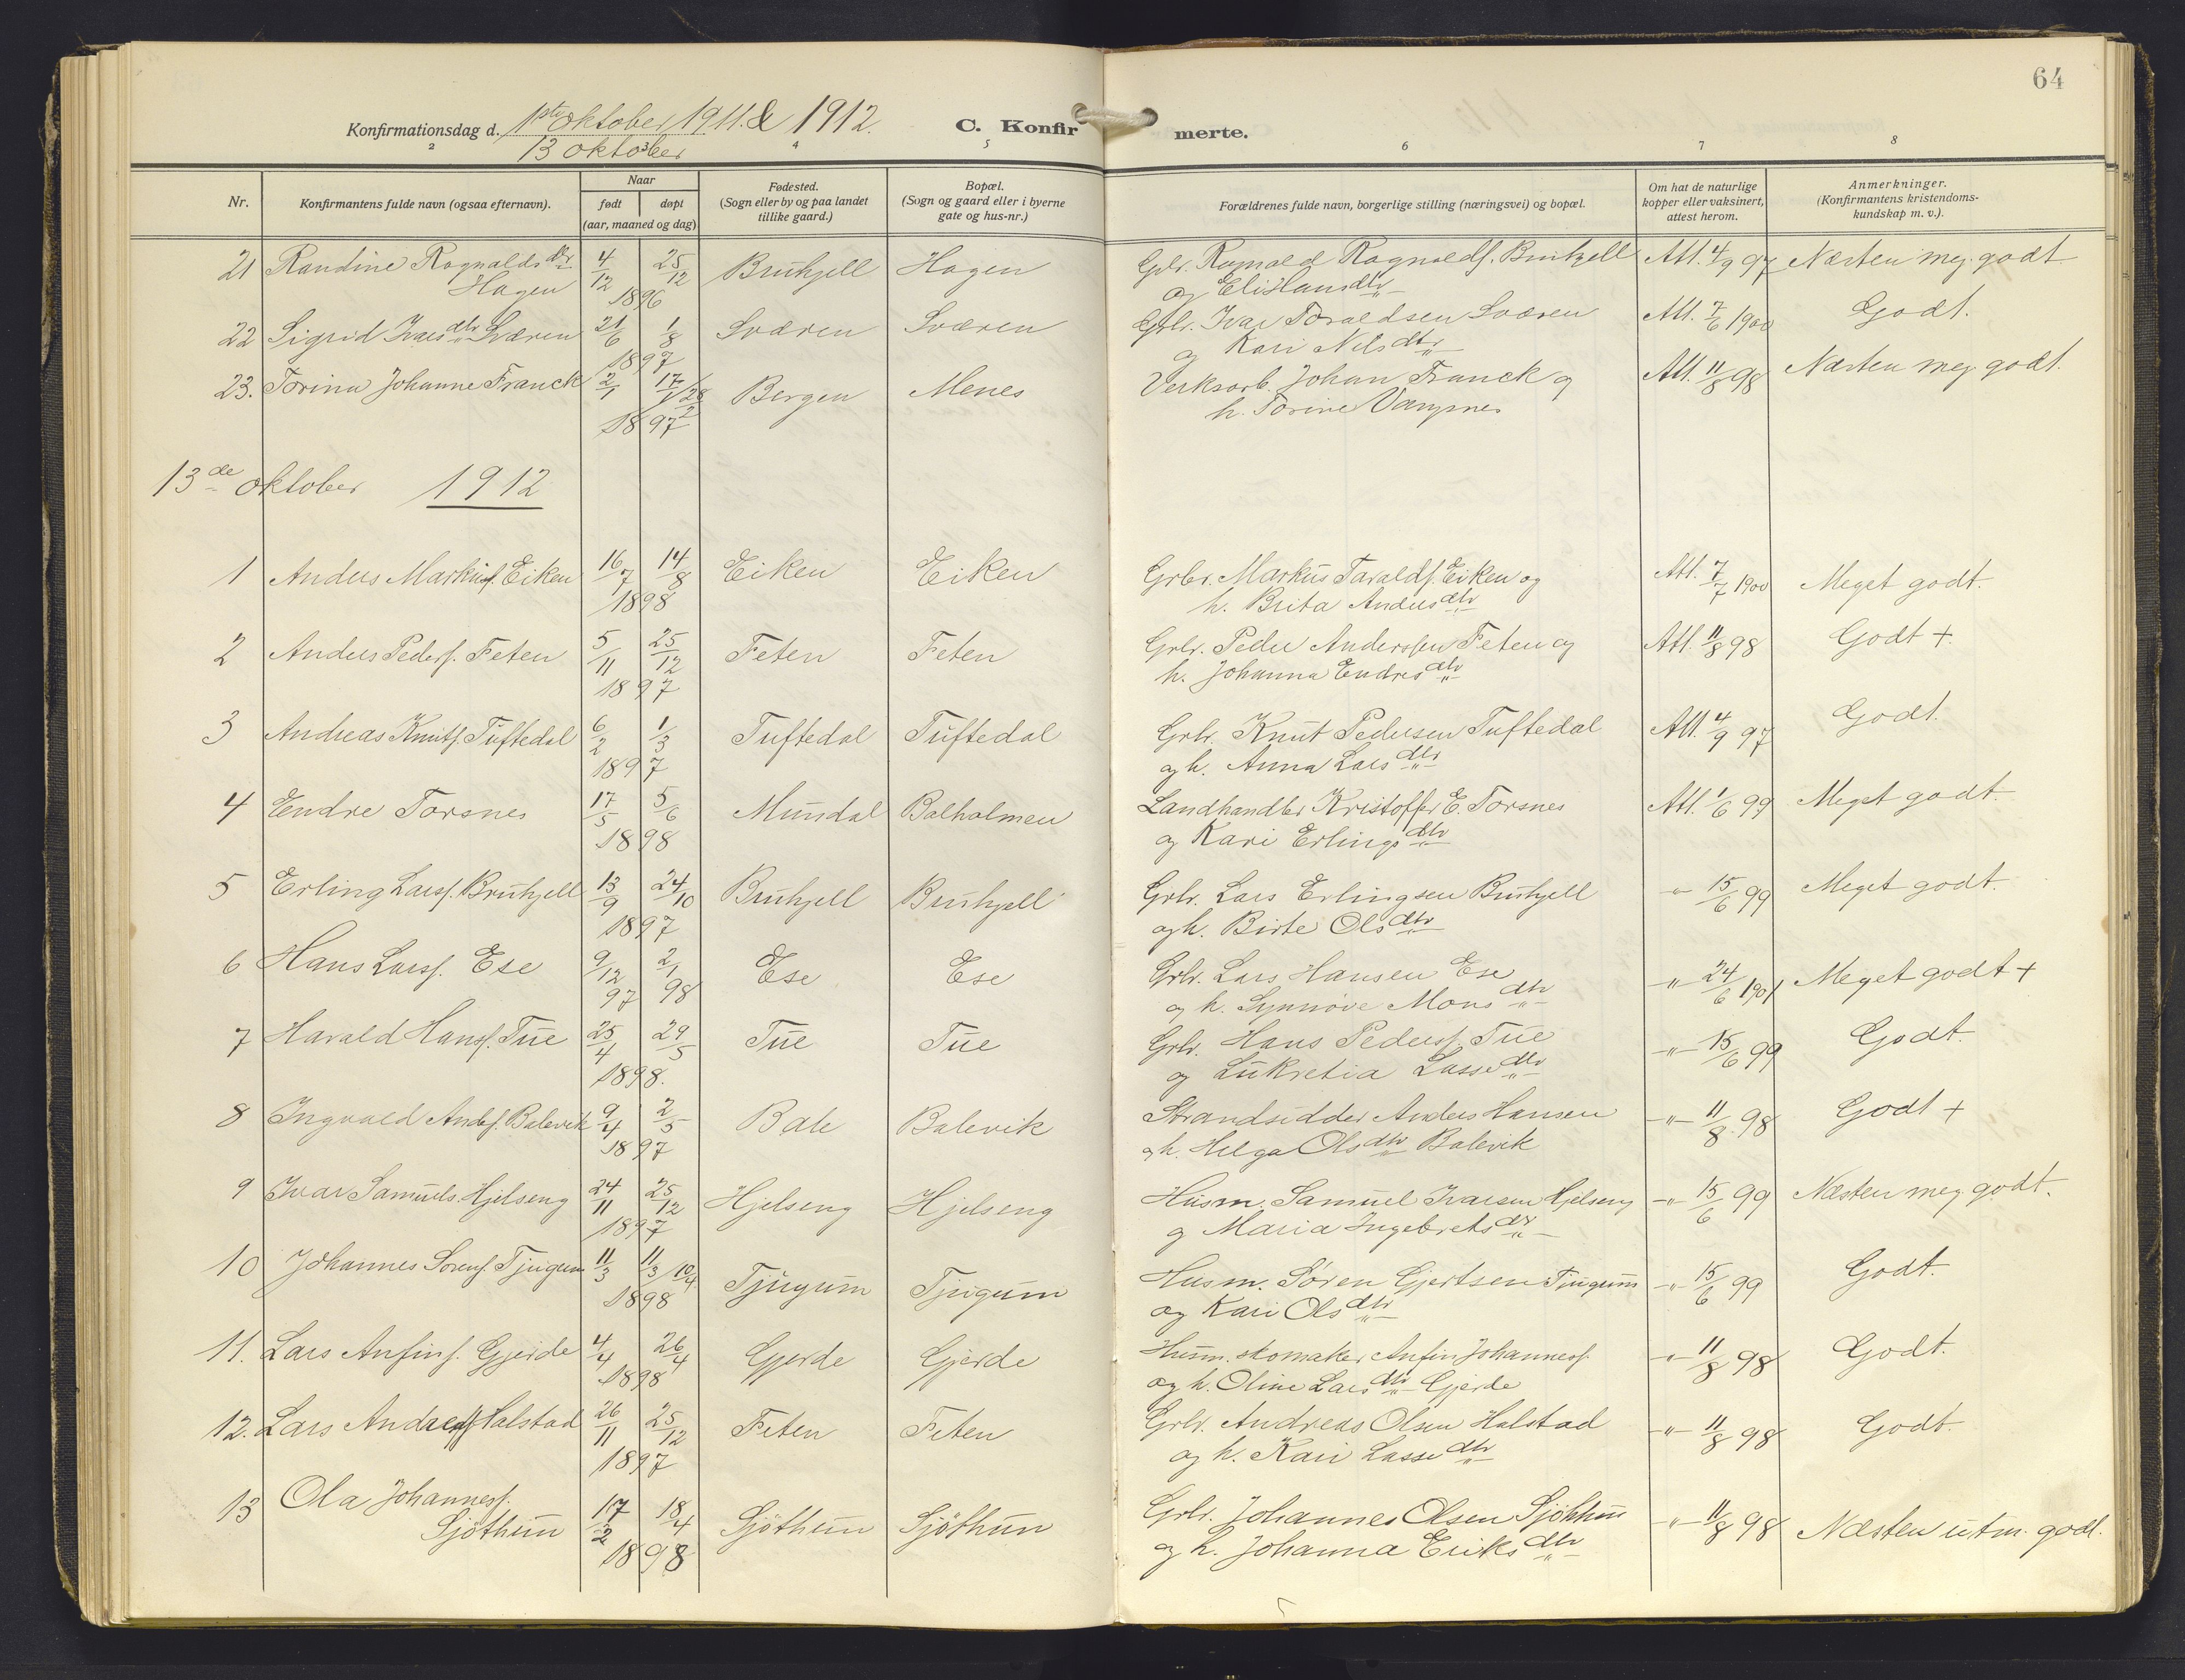 64
Konfirmationsdag d. 1ste oktober 1911. & 1912. C. Konfirmerte.
13 oktober
2 3 4 5 6 7 8
Nr. Konfirmantens fulde navn (ogsaa efternavn). Naar født døpt (aar, maaned og dag) Fødested. (Sogn eller by og paa landet tillike gaard.) Bopæl. (Sogn og gaard eller i byerne gate og hus-nr.) Forældrenes fulde navn, borgerlige stilling (næringsvei) og bopæl. Om hat de naturlige kopper eller vaksinert, attest herom. Anmerkninger. (Konfirmantens kristendoms-kundskap m. v.).
21 Randine Ragnaldsdtr 4/12 25/12 Bruhjell Hagen Grbr. Ragnald Ragnaldss. Bruhjell Att. 4/9 97 Næsten meg. godt
Hagen 1896 og Eli Hansdtr
22 Sigrid Ivarsdtr Sværen 21/6 1/8 Sværen Sværen Grbr. Ivar Taraldsen Sværen Att. 7/6 1900 Godt.
1897 og Kari Nilsdtr
23. Torina Johanne Franck 2/1 17/1 28/2 Bergen Menes Verksarb. Johan Franck og Att. 11/8 98 Næsten meg. godt.
1897 h. Torine Vangsnes
13de oktober 1912
1 Anders Markuss. Eiken 16/7 14/8 Eiken Eiken Grbr. Markus Taralds. Eiken og Att. 7/7 1900 Meget godt.
1898 h. Brita Andersdtr
2 Anders Peders. Feten 5/11 25/12 Feten Feten Grbr. Peder Anderssen Feten og Att. 11/8 98 Godt +
1897 h. Johanna Endresdtr
3 Andreas Knuts. Tuftedal 6/2 1/3 Tuftedal Tuftedal Grbr. Knut Pedersen Tuftedal Att. 4/9 97 Godt.
1897 og h. Anna Larsdtr
4 Endre Torsnes 17/5 5/6 Mundal Balholmen Landhandler Kristoffer E. Torsnes Att. 1/6 99 Meget godt.
1898 og Kari Erlingsdtr
5 Erling Larss. Bruhjell 13/9 24/10 Bruhjell Bruhjell Grbr. Lars Erlingsen Bruhjell -"- 15/6 99 Meget godt.
1897 og h. Birte Olsdtr
6 Hans Larss. Ese 9/12 97 2/1 98 Ese Ese Grbr. Lars Hansen Ese -"- 24/6 1901 Meget godt +
og h. Synnøve Monsdtr
7 Harald Hanss. Tue 25/4 29/5 Tue Tue Grbr. Hans Peders. Tue -"- 15/6 99 Godt.
1898. og Lukretia Lassedtr
8 Ingvald Anders. Balevik 9/4 2/5 Bale Balevik Strandsidder Anders Hansen -"- 11/8 98 Godt +
1897 og h. Helga Olsdtr Balevik
9 Ivar Samuels. Hjelseng 24/11 25/12 Hjelseng Hjelseng Husm. Samuel Ivarsen Hjelseng -"- 15/6 99 Næsten meg. godt.
1897 og Maria Ingebretsdtr
10 Johannes Sørens. Tjugum 11/3 11/3 10/4 Tjugum Tjugum Husm. Søren Gjertsen Tjugum -"- 15/6 99 Godt.
1898 og Kari Olsdtr
11. Lars Anfins. Gjerde 4/4 26/4 Gjerde Gjerde Husm. skomaker Anfin Johanness. -"- 11/8 98 Godt.
1898 og h. Oline Larsdtr Gjerde
12. Lars Andreass. Halstad 26/11 25/12 Feten Feten Grbr. Andreas Olsen Halstad -"- 11/8 98 Godt.
1897 og h. Kari Lassedtr
13 Ola Johanness. 17/2 18/4 Sjøthun Sjøthun Grbr. Johannes Olsen Sjøthun -"- 11/8 98 Næsten utm. godt.
Sjøthun 1898 og h. Johanna Eriksdtr